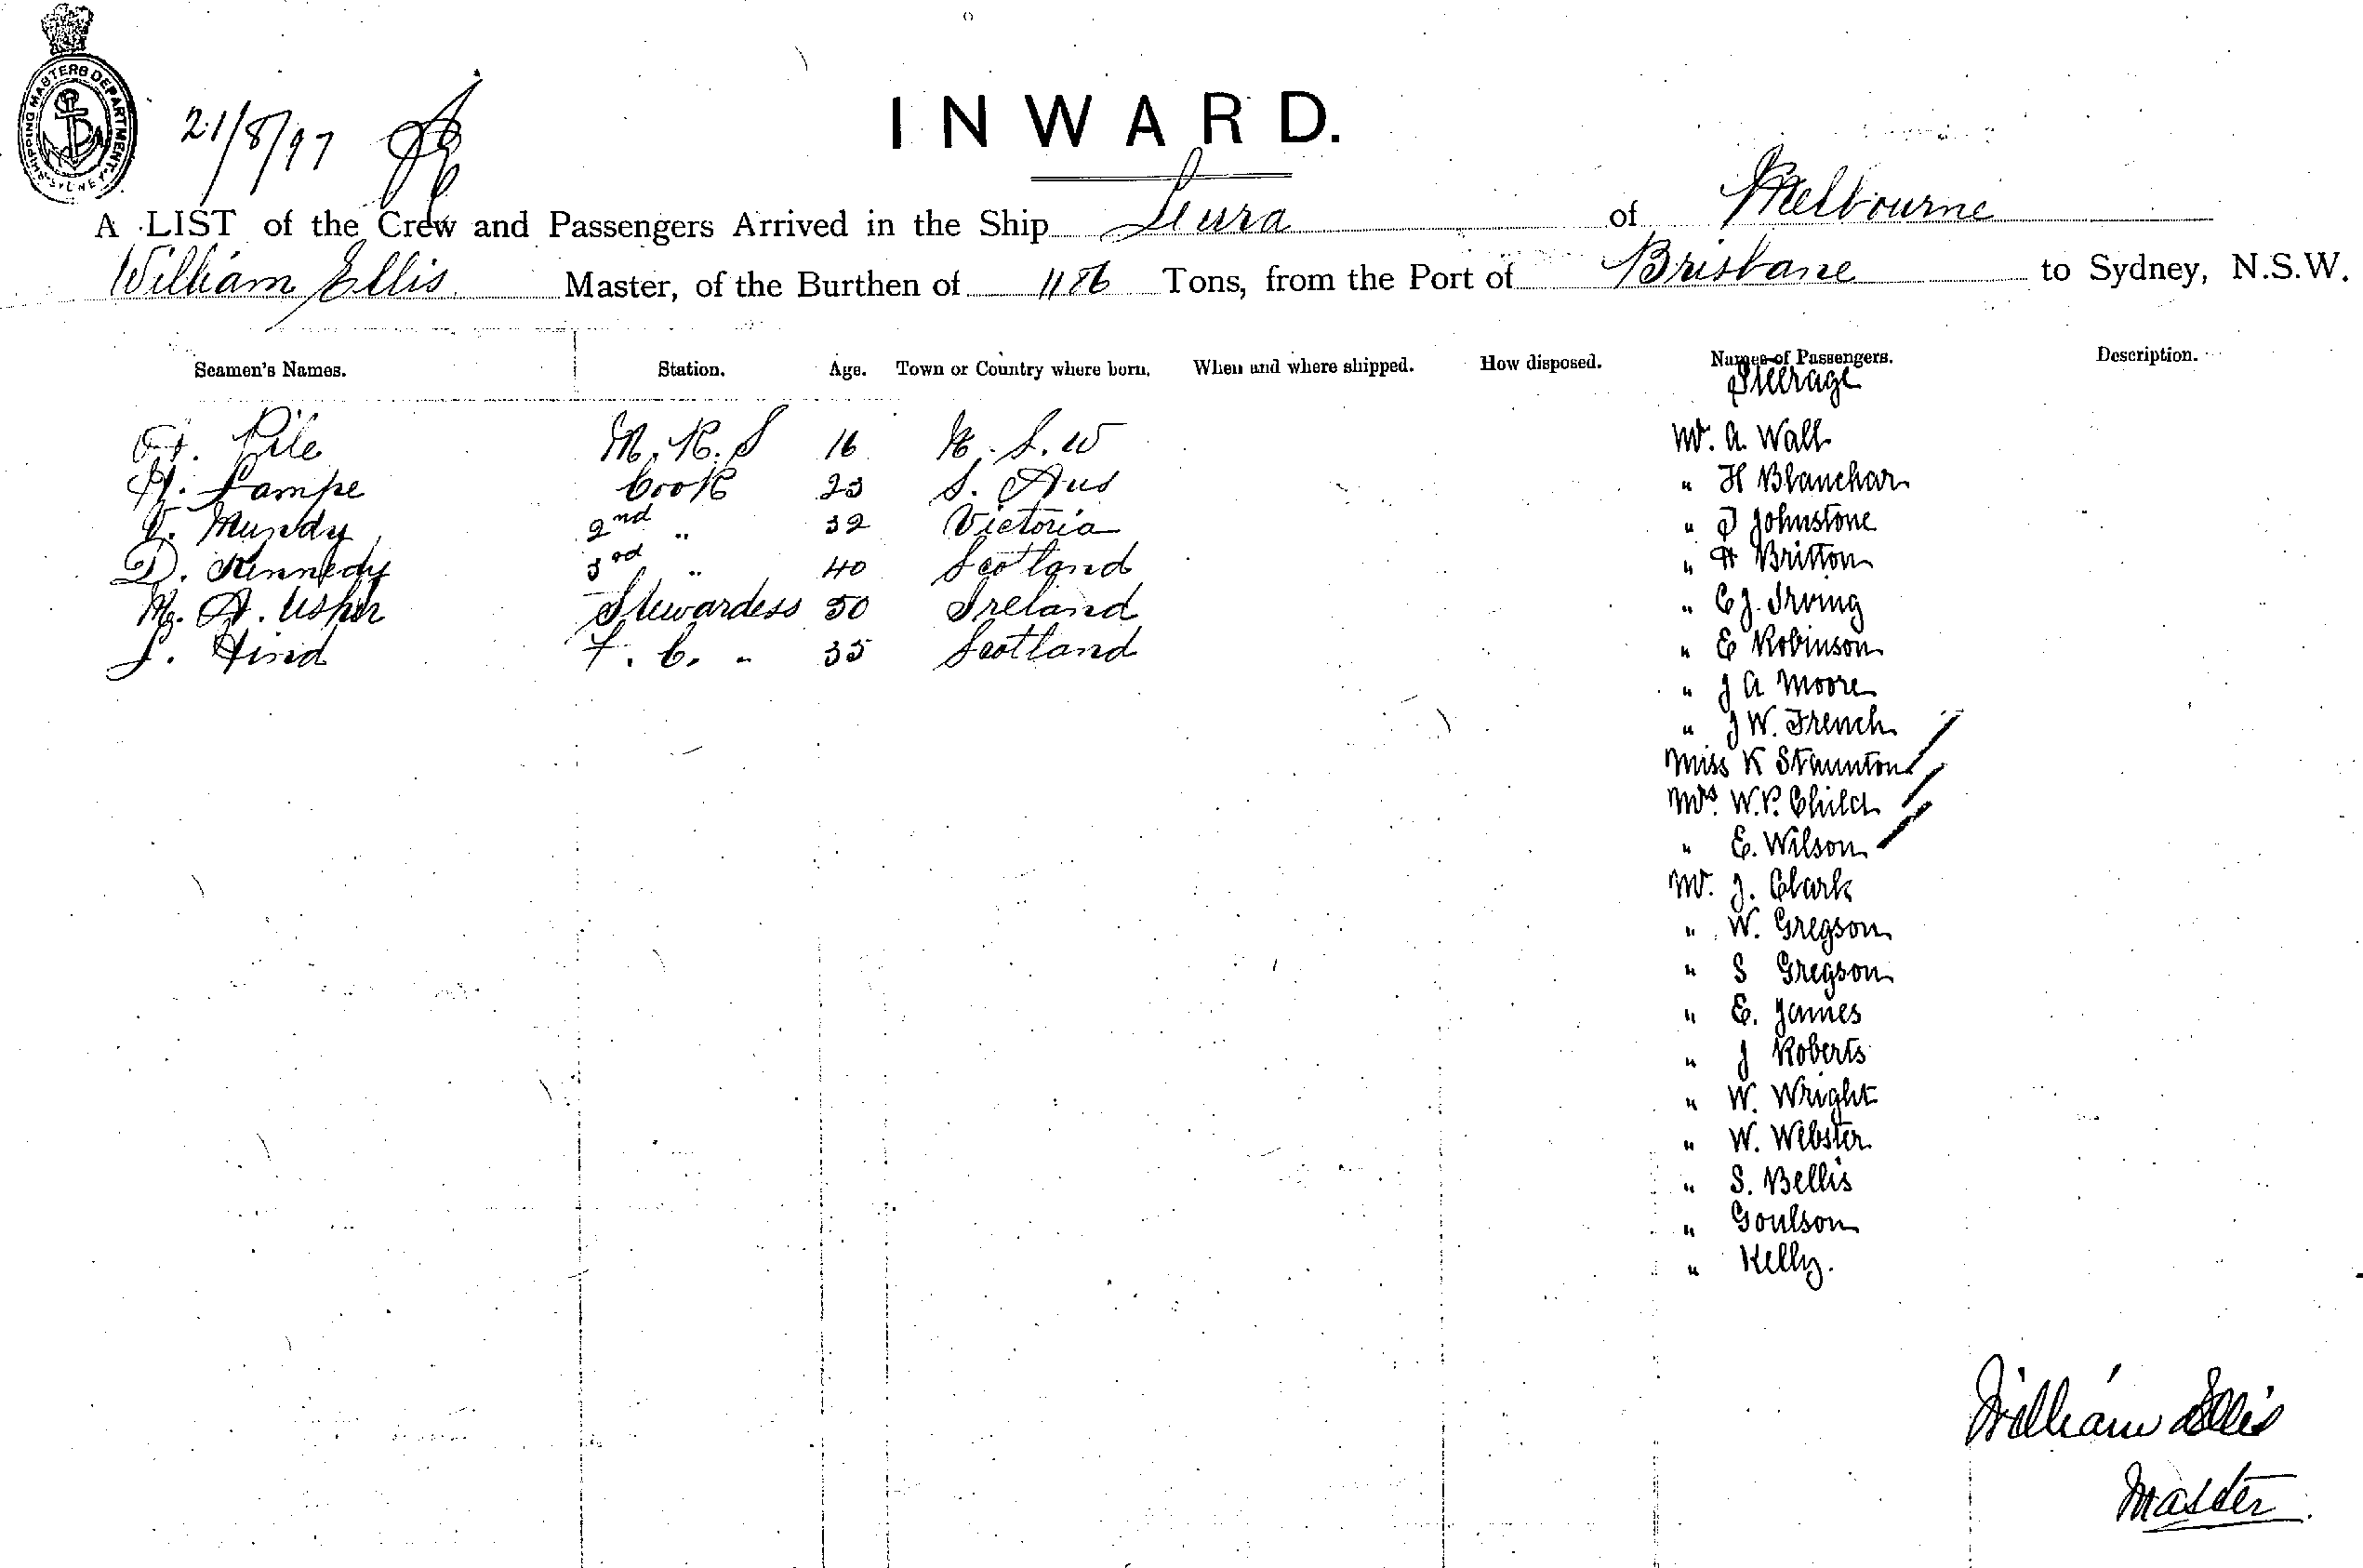 SHIPPING MASTERS DEPARTMENT. SYDNEY
21/8/97
INWARD.
A LIST of the Crew and Passengers Arrived in the Ship Leura of Melbourne
William Ellis Master, of the Burthen of 1186 Tons, from the Port of Brisbane to Sydney, N.S.W.
Seamen's Names. Station. Age. Town or Country where born. When and where shipped. How disposed. Names of Passengers. Description.
Steerage
A. Pile M. R. S 16 N. S. W Mr. A. Wall
H. Lampe Cook 23 S. Aus " H Blanchar
V. Mundy 2nd " 32 Victoria " J Johnstone
D. Kennedy 3rd " 40 Scotland " H Britton
M. A. Usher Stewardess 50 Ireland " C J. Irving
J. Hind F. C. " 35 Scotland " E Robinson
" J A Moore
" J W. French
Miss K Staunton
Mrs. W.P. Child
" E. Wilson
Mr. J. Clark
" W. Gregson
" S Gregson
" E. James
" J Roberts
" W. Wright
" W. Webster
" S. Bellis
" Goulson
" Kelly.
William Ellis
Master